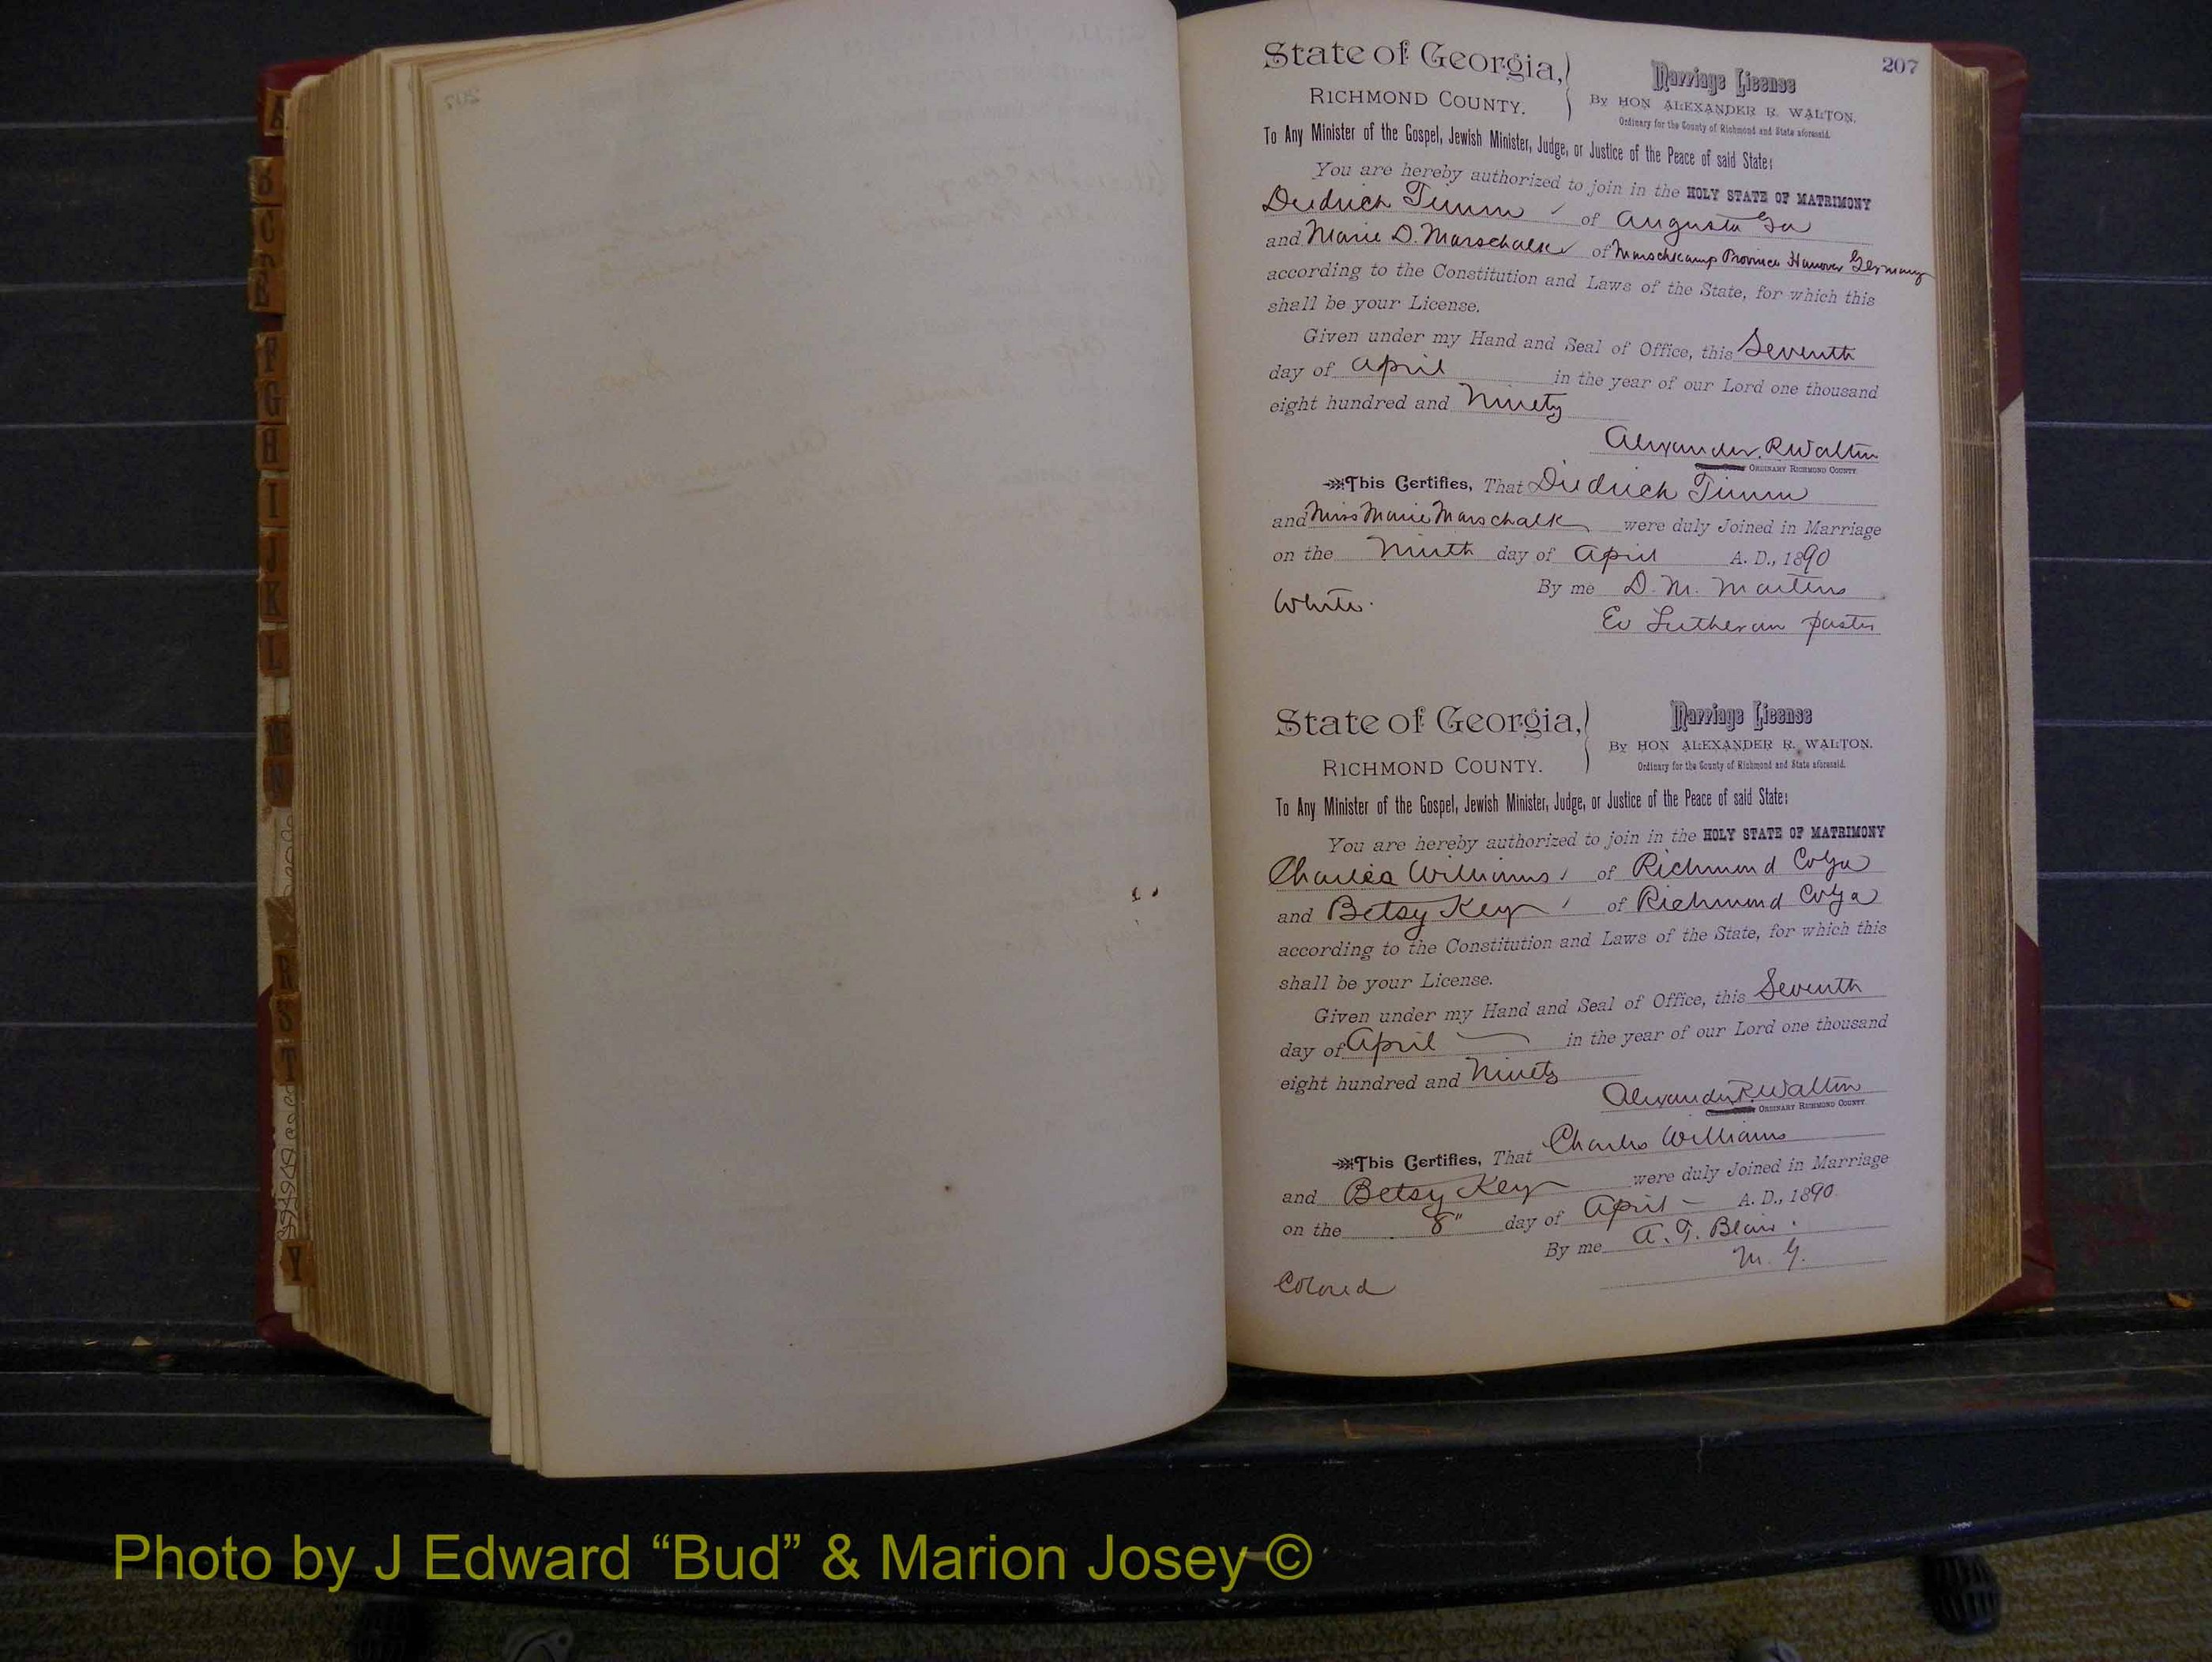 207
State of Georgia,
RICHMOND COUNTY.
Marriage License
By HON ALEXANDER R. WALTON,
Ordinary for the County of Richmond and State aforesaid.
To Any Minister of the Gospel, Jewish Minister, Judge, or Justice of the Peace of said State:
You are hereby authorized to join in the HOLY STATE OF MATRIMONY
Diedrich Timm of Augusta Ga
and Marie D. Marschalk of Marschkamp Province Hanover Germany
according to the Constitution and Laws of the State, for which this
shall be your License.
Given under my Hand and Seal of Office, this Seventh
day of April in the year of our Lord one thousand
eight hundred and Ninety
Alexander R Walton
ORDINARY RICHMOND COUNTY.
This Certifies, That Diedrich Timm
and Miss Marie Marschalk were duly Joined in Marriage
on the Ninth day of April A. D., 1890
By me D. M. Martens
White.
Ev Lutheran pastor
State of Georgia,
RICHMOND COUNTY.
Marriage License
By HON ALEXANDER R. WALTON.
Ordinary for the County of Richmond and State aforesaid.
To Any Minister of the Gospel, Jewish Minister, Judge, or Justice of the Peace of said State:
You are hereby authorized to join in the HOLY STATE OF MATRIMONY
Charles Williams of Richmond Co Ga
and Betsy Key of Richmond Co Ga
according to the Constitution and Laws of the State, for which this
shall be your License.
Given under my Hand and Seal of Office, this Seventh
day of April in the year of our Lord one thousand
eight hundred and Ninety
Alexander R. Walton
ORDINARY RICHMOND COUNTY.
This Certifies, That Charles Williams
and Betsy Key were duly Joined in Marriage
on the 8" day of April A. D., 1890
By me A. T. Blair.
M. G.
Colored
G
H
I
J
K
L
S
T
Y
Photo by J Edward “Bud” & Marion Josey ©